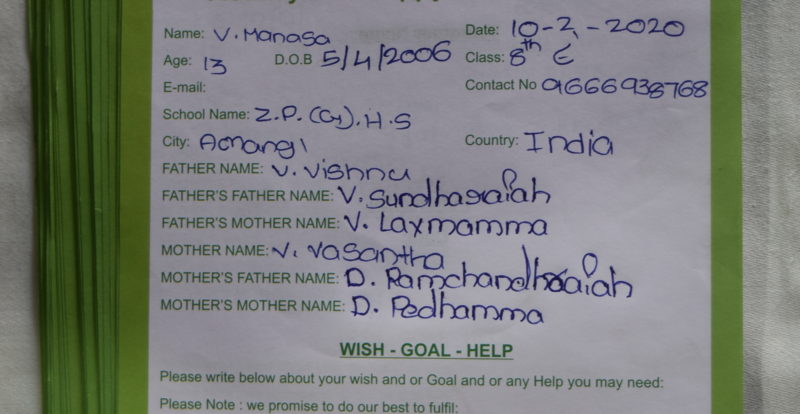 Name: V. Manasa Date: 10-2-2020
Age: 13 D.O.B 5/4/2006 Class: 8th E
E-mail: Contact No 9666938768
School Name: Z.P.(G).H.S
City: Amangl Country: India
FATHER NAME: V. Vishnu
FATHER'S FATHER NAME: V. Sundharaiah
FATHER'S MOTHER NAME: V. Laxmamma
MOTHER NAME: V. Vasantha
MOTHER'S FATHER NAME: D. Ramchandhraiah
MOTHER'S MOTHER NAME: D. Pedhamma
WISH - GOAL - HELP
Please write below about your wish and or Goal and or any Help you may need:
Please Note : we promise to do our best to fulfil: